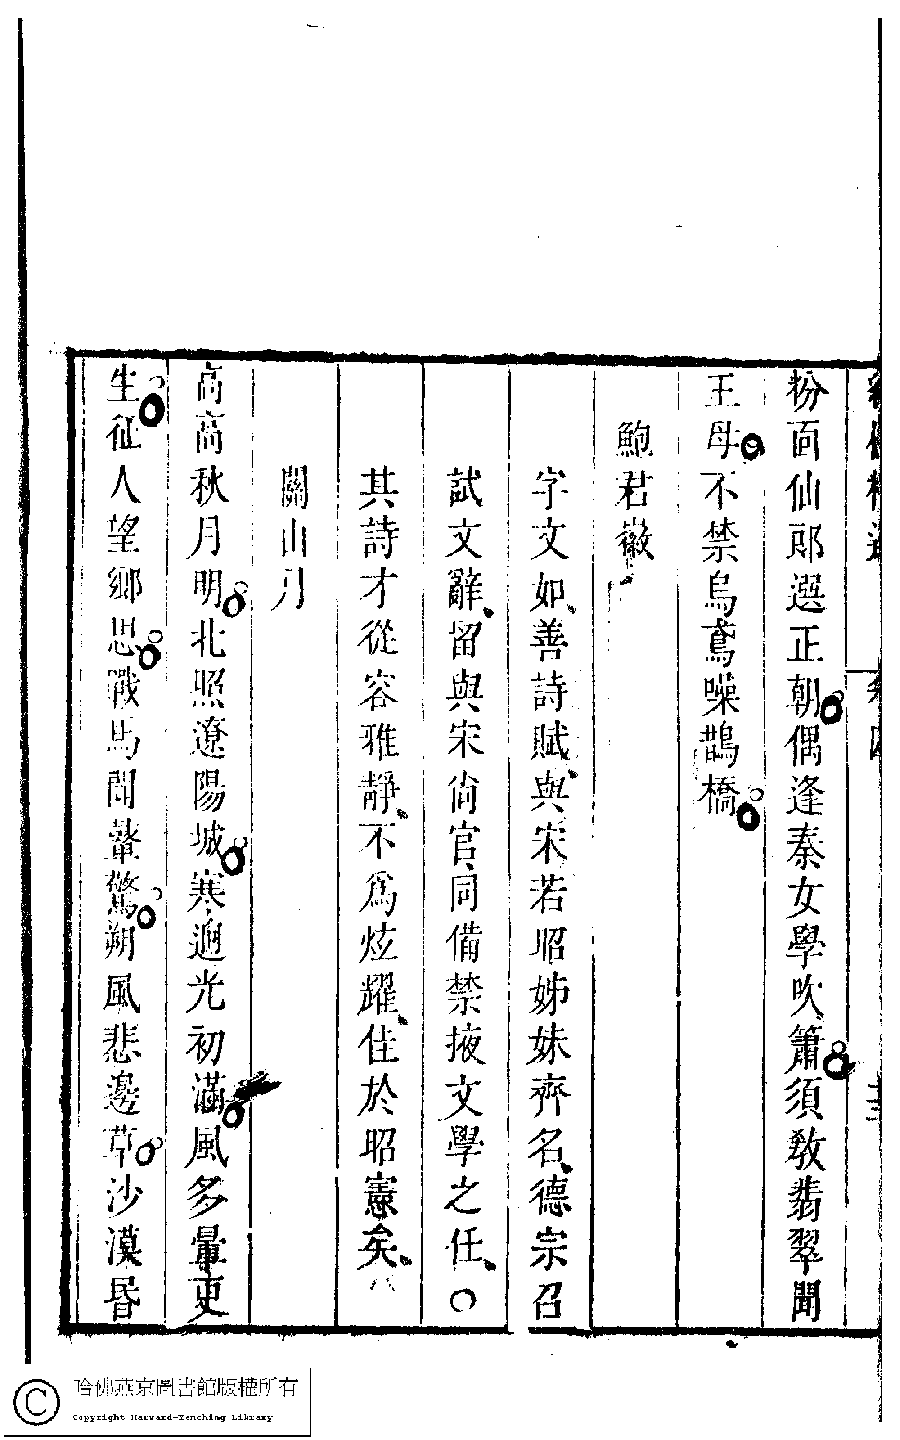 粉面仙郎選正朝偶逢秦女學吹簫須教翡翠聞
王母不禁烏鳶噪鵲橋
鮑君徽
字文如善詩賦與宋若昭姊妹齊名德宗召
試文辭留與宋尚官同備禁掖文學之任〇
其詩才從容雅靜不為炫耀佳於昭憲矣
關山月
高高秋月明北照遼陽城寒迥光初滿風多暈更
生征人望鄉思戰馬聞鼙驚朔風悲邊草沙漠昏
哈佛燕京圖書館版權所有
Copyright Harvard-Yenching Library